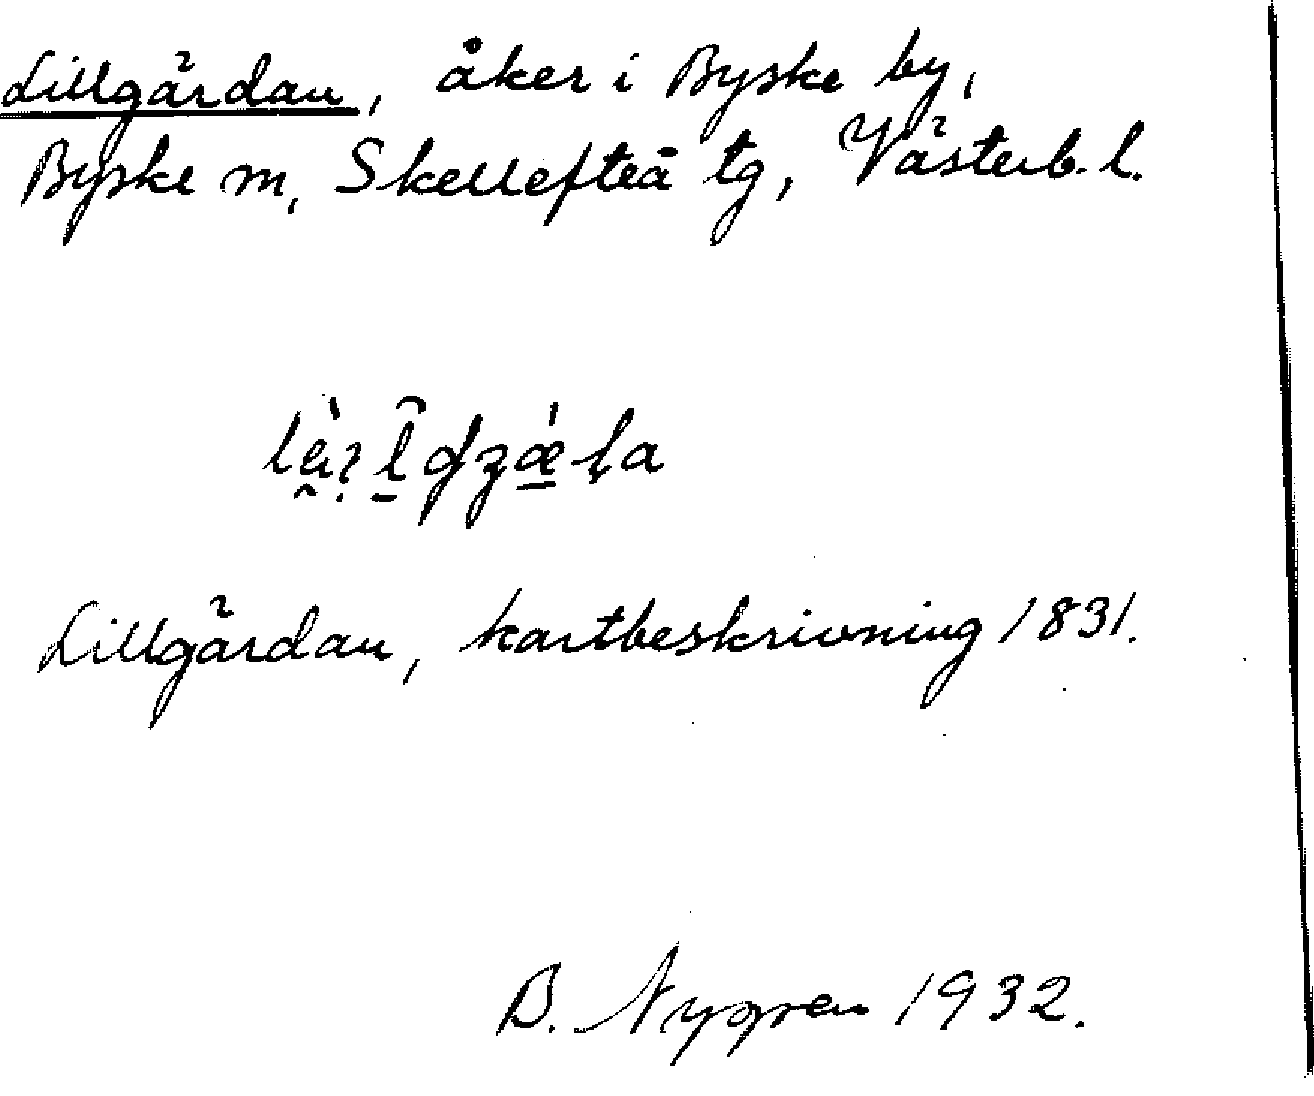 Lillgärdan, åker i Byske by,
Byske m, Skellefteå tg, Västerb. l.
Lillgärdan, kartbeskrivning 1831.
B. Nygren 1932.